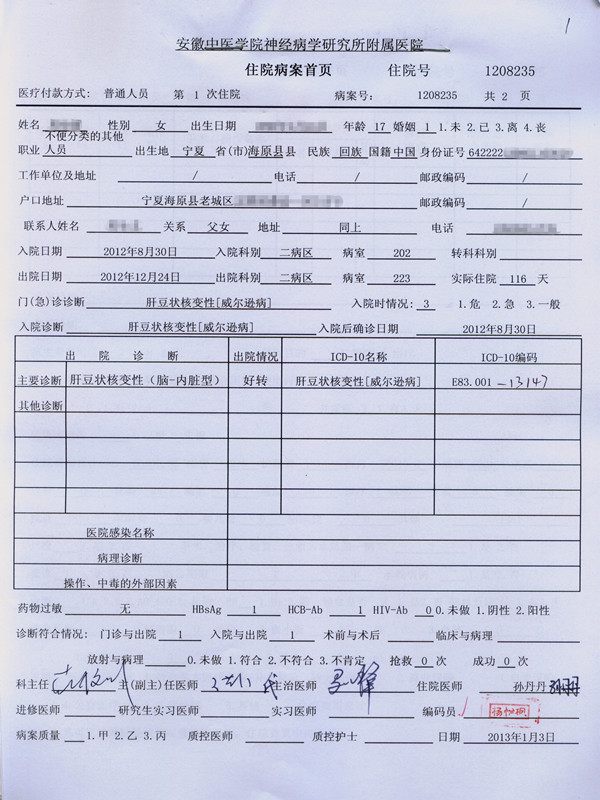 1
安徽中医学院神经病学研究所附属医院
住院病案首页 住院号 1208235
医疗付款方式: 普通人员 第 1 次住院 病案号: 1208235 共 2 页
姓名 性别 女 出生日期 年龄 17 婚姻 1 1.未 2.已 3.离 4.丧
不便分类的其他
职业 人员 出生地 宁夏 省(市) 海原县 县 民族 回族 国籍 中国 身份证号 642222
工作单位及地址 / 电话 / 邮政编码 /
户口地址 宁夏海原县老城区 邮政编码 /
联系人姓名 关系 父女 地址 同上 电话
入院日期 2012年8月30日 入院科别 二病区 病室 202 转科科别
出院日期 2012年12月24日 出院科别 二病区 病室 223 实际住院 116 天
门(急)诊诊断 肝豆状核变性[威尔逊病] 入院时情况: 3 1.危 2.急 3.一般
入院诊断 肝豆状核变性[威尔逊病] 入院后确诊日期 2012年8月30日
出 院 诊 断 出院情况 ICD-10名称 ICD-10编码
主要诊断 肝豆状核变性（脑-内脏型） 好转 肝豆状核变性[威尔逊病] E83.001 -13147
其他诊断
医院感染名称
病理诊断
操作、中毒的外部因素
药物过敏 无 HBsAg 1 HCB-Ab 1 HIV-Ab 0 0.未做 1.阴性 2.阳性
诊断符合情况: 门诊与出院 1 入院与出院 1 术前与术后 临床与病理
放射与病理 0.未做 1.符合 2.不符合 3.不肯定 抢救 0 次 成功 0 次
科主任 主(副主)任医师 主治医师 住院医师 孙丹丹
进修医师 研究生实习医师 实习医师 编码员
病案质量 1.甲 2.乙 3.丙 质控医师 质控护士 日期 2013年1月3日